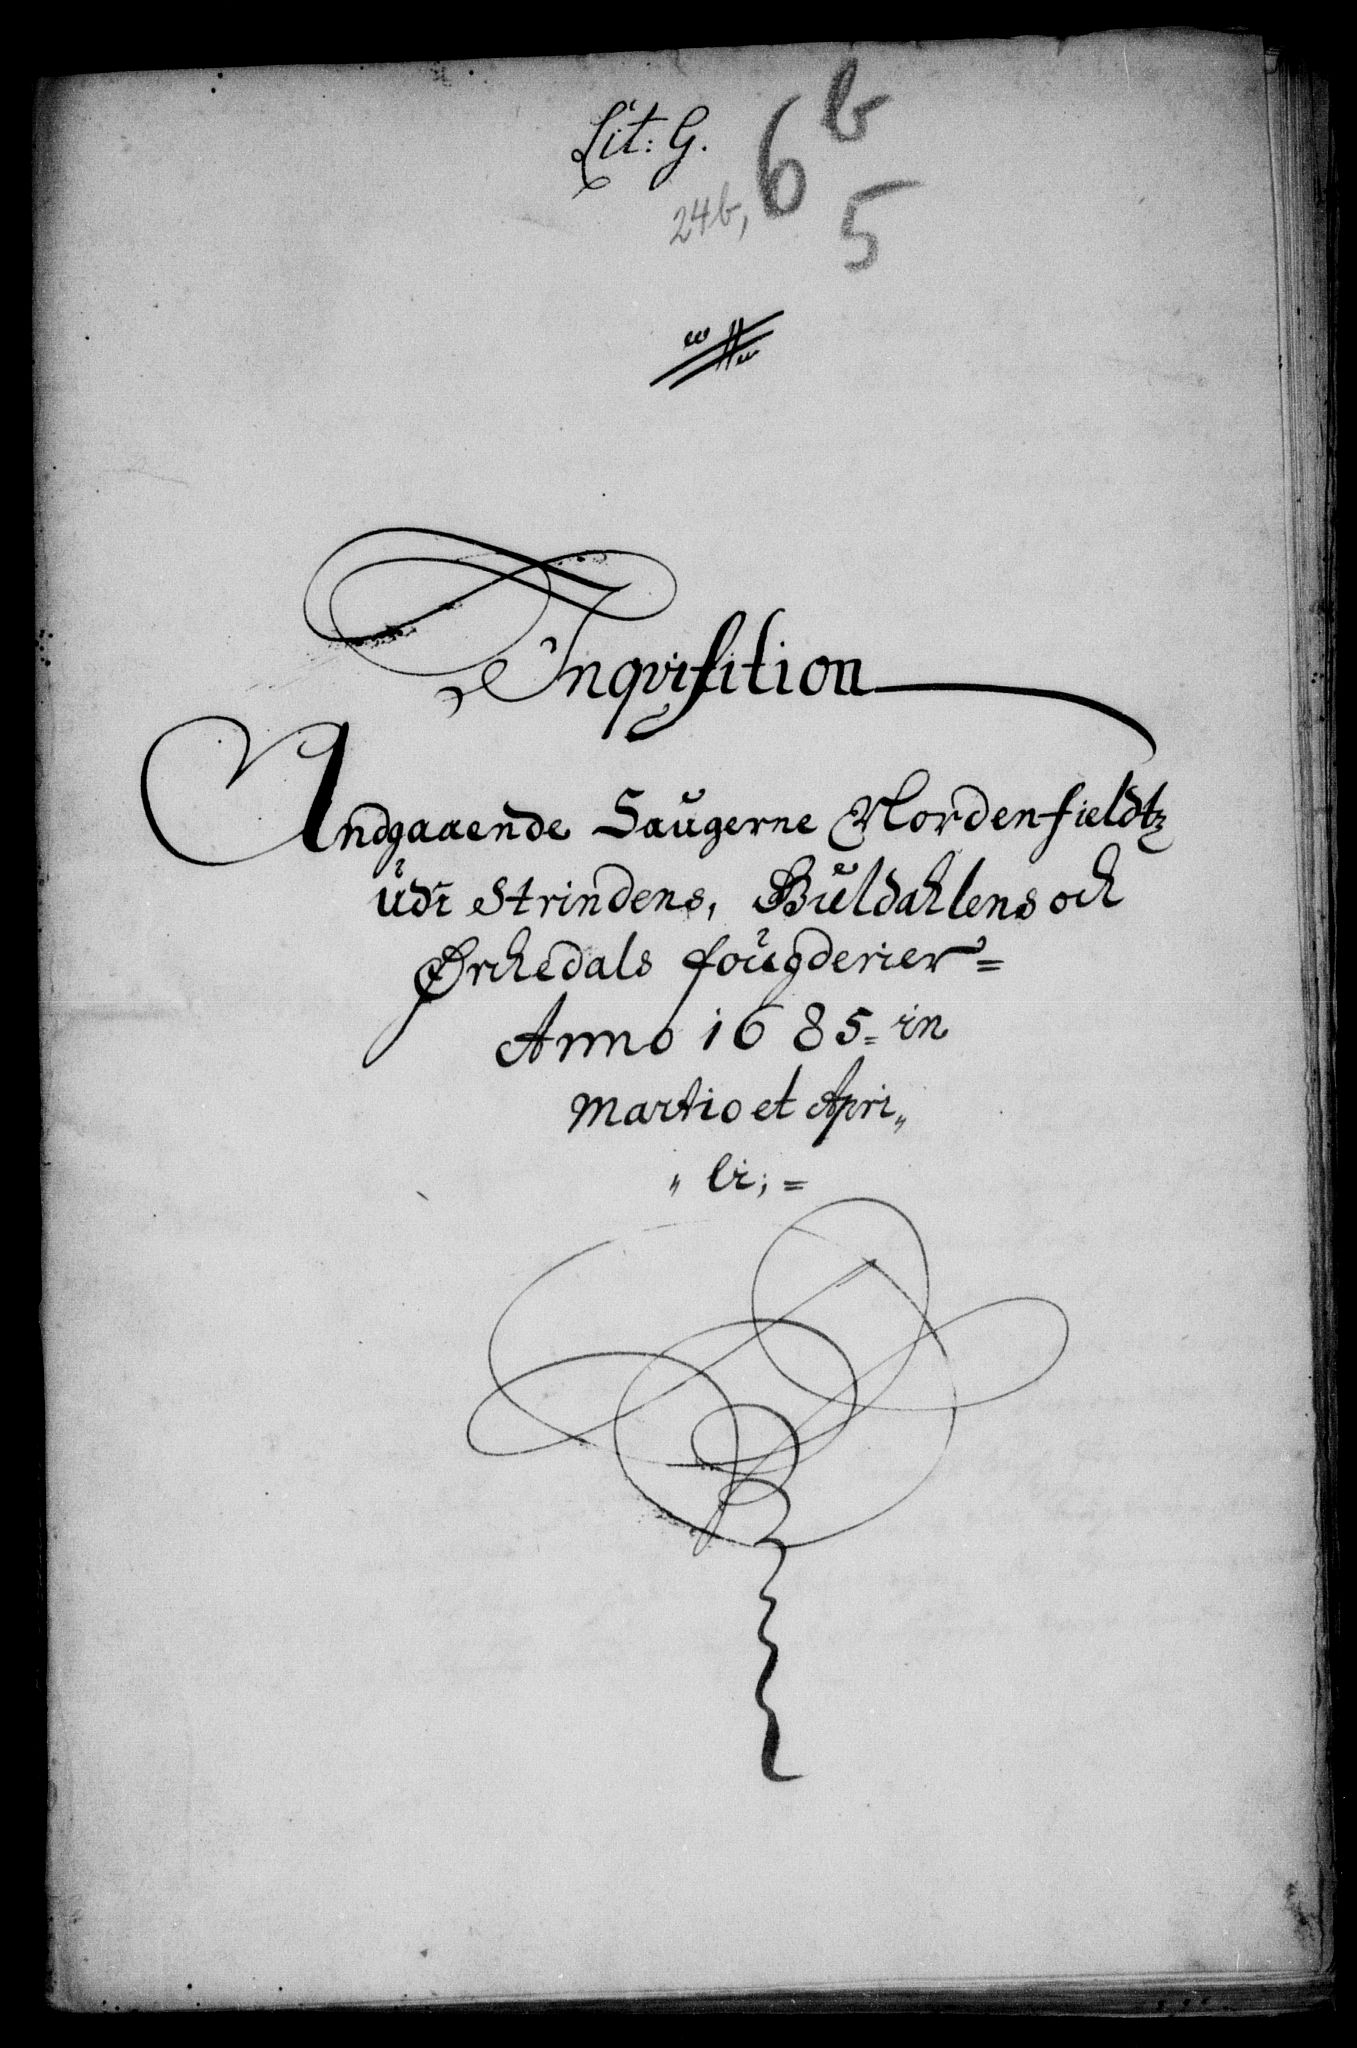 Lit: G.
6b
24b, 5
Inqvisition
Andgaaende Saugerne Nordenfieldtz
udi Strindens, Guldahlens och
Ørchedals fougderier=
Anno 1685= in
Martio et Apri„
„ li;=